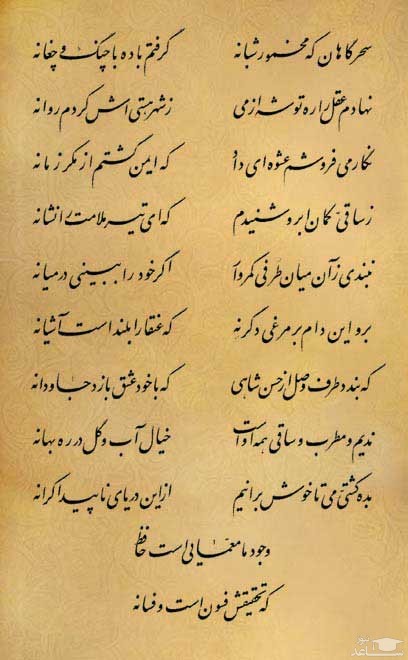 سحرگاهان که مخمور شبانه گرفتم باده با چنگ و چغانه
نهادم عقل را ره توشه از می ز شهر هستی اش کردم روانه
نگار می فروشم عشوه ای داد که ایمن گشتم از مکر زمانه
ز ساقی کمان ابرو شنیدم که ای تیر ملامت را نشانه
نبندی زآن میان طرفی کمروار اگر خود را ببینی در میانه
برو این دام بر مرغی دگر نه که عنقا را بلند است آشیانه
که بندد طرف وصل از حسن شاهی که با خود عشق بازد جاودانه
ندیم و مطرب و ساقی همه اوست خیال آب و گل در ره بهانه
بده کشتی می تا خوش برانیم از این دریای ناپیدا کرانه
وجود ما معمایی است حافظ
که تحقیقش فسون است و فسانه